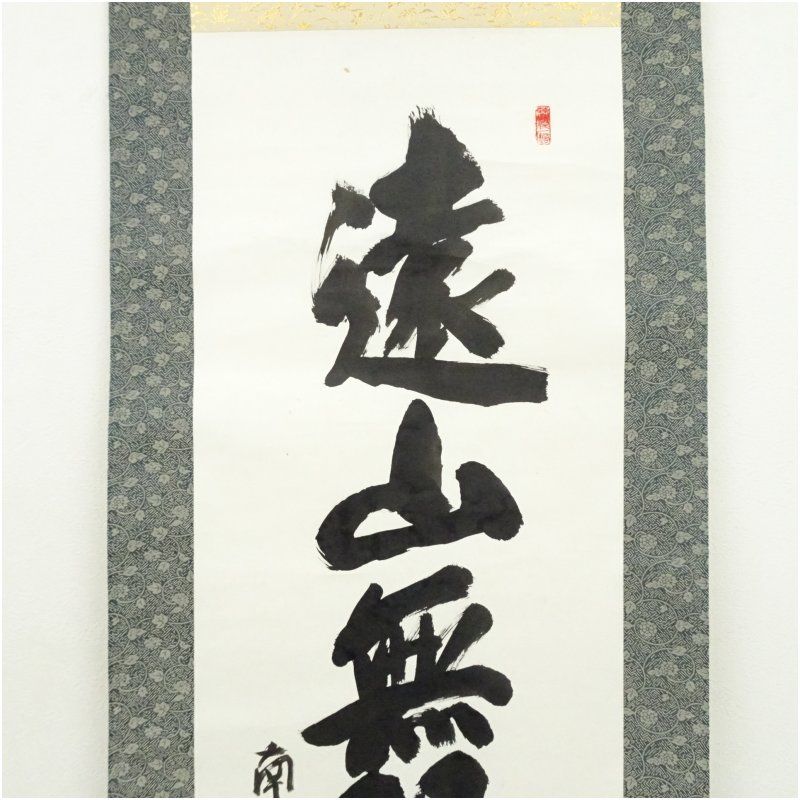 遠山無
南